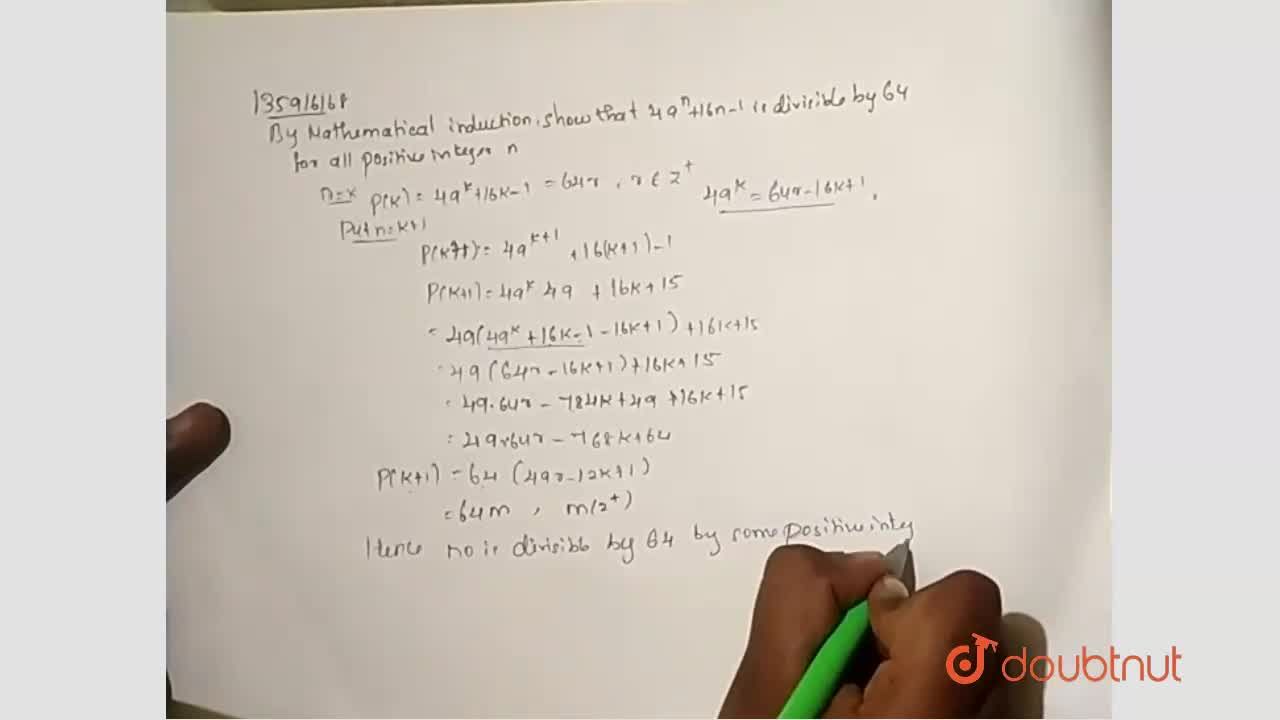 135916168
By Mathematical induction, show that 49^n+16n-1 is divisible by 64
for all positive integer n
n=k P(k) = 49^k+16k-1 = 64r , r ∈ z^+ 49^k = 64r-16k+1 ,
Put n=k+1
P(k+1) = 49^{k+1} +16(k+1)-1
P(k+1) = 49^k 49 + 16k+15
= 49(49^k+16k-1-16k+1)+16k+15
= 49(64r-16k+1)+16k+15
= 49.64r-784k+49+16k+15
= 49×64r-768k+64
P(k+1) = 64(49r-12k+1)
= 64m , m(z^+)
Hence no is divisible by 64 by some positive integ
doubtnut